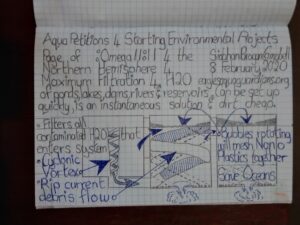 Aqua Petitions 4 Starting Environmental Projects
Page of "Omega No1" 4 the
Northern Hemisphere 4 8 February 2020
Maximum Filtration 4 H2O
of ponds, lakes, dams, rivers & reservoirs. Can be set up
quickly, is an instantaneous solution & dirt cheap.
• Filters all
contaminated H2O that
enters system
• Cyclonic
Vortex
• Rip current
debris flow
• Bubbles rotating
will mesh Nano
Plastics together
Save Oceans